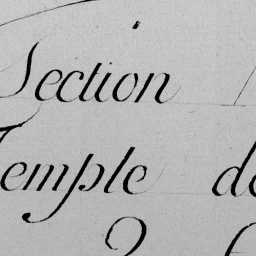 Section
Temple de
2